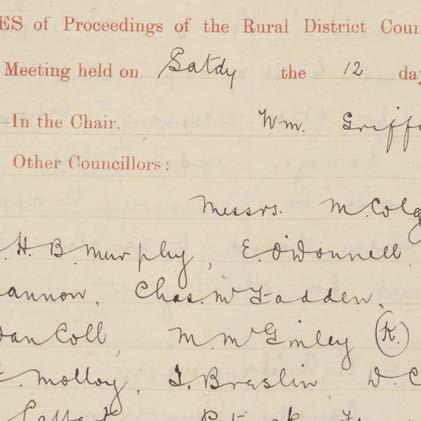 ES of Proceedings of the Rural District Coun
Meeting held on Satdy the 12 day
In the Chair, Wm. Griff
Other Councillors:
Messrs. M. Colg
H. B. Murphy, E. O'Donnell,
annon, Chas. McFadden,
Dan Coll, M. McGinley (K.)
Molloy, J. Breslin, D. C